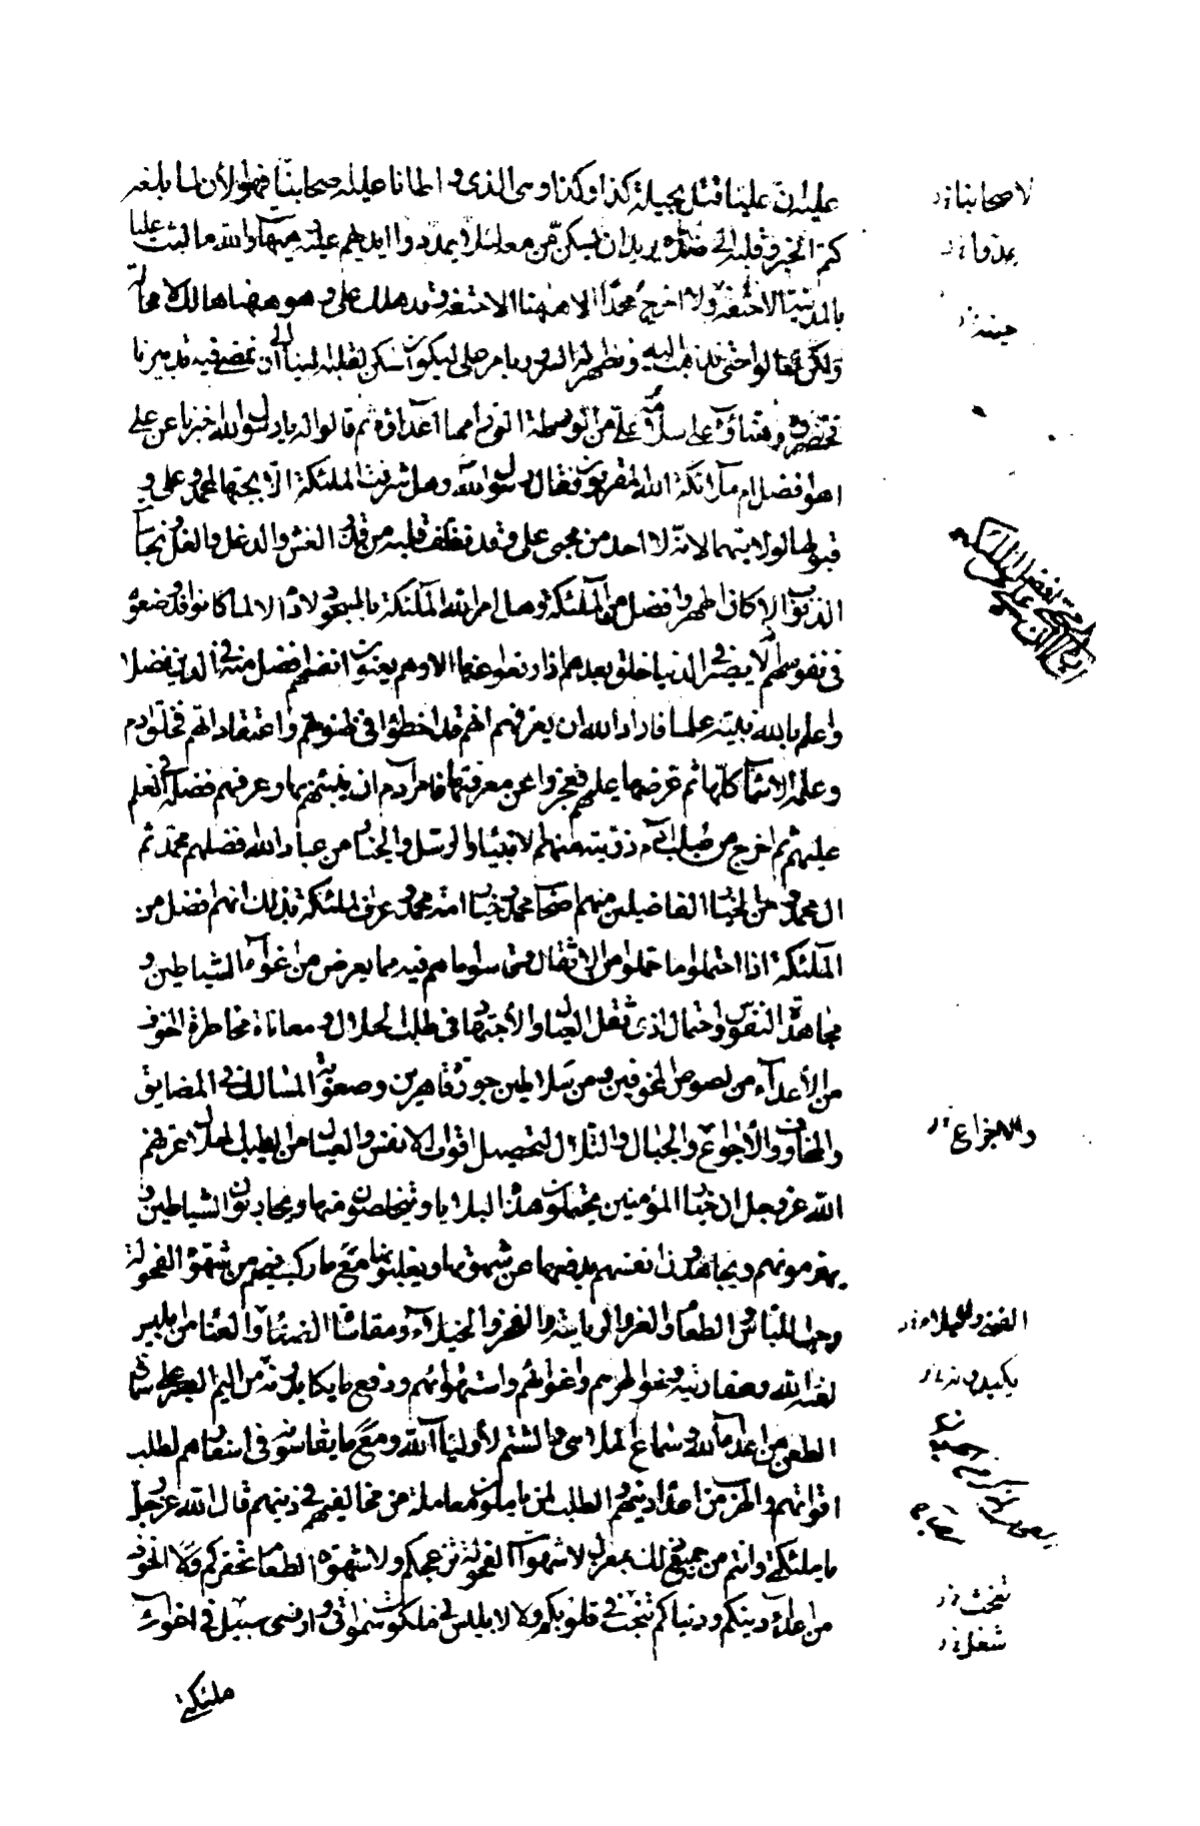 عليه ان عليا قتل بحيلة كذا وكذا وهى الذى واطانا عليه صحابنا فهو الأن لما بلغه
كتم الخبر وقلبه الى ضده يريد ان يسكن من معه لئلا يمدوا ايديهم عليه هيهات والله ما لبث عليا
بالمدينة الا حتفه ولا اخرج محمدا الا ههنا الا حتفه وقد هلك على وهو ههنا هالك لا محالة
ولكن تعالوا حتى نذهب اليه ونظهر له السرور بامر على ليكون اسكن لقلبه الينا الى ان نمضى فيه تدبيرنا
فحضروه وهنأوه على سلامة على من الورطة التى رامها اعداؤه ثم قالوا له يا رسول الله خبرنا عن على
اهو افضل ام ملائكة الله المقربون فقال رسول الله وهل شرفت الملئكة الا بحبها لمحمد وعلى و
قبولها لولايتهما لانه لا احد من محبى على وقد نظف قلبه من قذر الغش والدغل والغل ونجاسة
الذنوب الا كان اطهر وافضل من الملئكة وهل امر الله الملئكة بالسجود لادم الا لما كانوا قد وضعوه
فى نفوسهم انه لا يصير فى الدنيا خلق بعدهم اذا رفعوا عنها الا وهم يعنون انفسهم افضل منه فى الدين فضلا
واعلم بالله وبدينه علما فاراد الله ان يعرفهم انهم قد اخطئوا فى ظنونهم واعتقاداتهم فخلق ادم
وعلمه الاسماء كلها ثم عرضها عليهم فعجزوا عن معرفتها فامر آدم ان ينبئهم بها وعرفهم فضله فى العلم
عليهم ثم اخرج من صلب آدم ذريته منهم الانبياء والرسل والخيار من عباد الله افضلهم محمد ثم
ال محمد ومن الخيار الفاضلين منهم اصحاب محمد وخيار امة محمد وعرف الملئكة بذلك انهم افضل من
الملئكة اذا احتملوا ما حملوا من الاثقال وقاسوا ما هم فيه مما يعرض من اغواء الشياطين و
مجاهدة النفوس واحتمال اذى ثقل العيال والأجتهاد فى طلب الحلال ومعاناة مخاطرة الخوف
من الأعداء من لصوص مخوفين ومن سلاطين جورة قاهرين وصعوبة المسالك فى المضايق
والمخاوف والأجراع والجبال والتلال لتحصيل اقوات الانفس والعيال من الطيب الحلال عرفهم
الله عز وجل ان خيار المؤمنين يحتملون هذه البلايا ويتخلصون منها ويحاربون الشياطين و
يهزمونهم ويجاهدون انفسهم بدفعها عن شهواتها ويغلبونها مع ما ركب فيهم من شهوة الفحولة
وحب اللباس والطعام والعز والرياسة والفخر والخيلاء ومقاساة العناء والبلاء من ابليس
لعنه الله وعفاريته وخواطرهم واغوائهم واستهوائهم ودفع ما يكابدونه من اليم الصبر على سماع
الطعن من اعداء الله وسماع الملاهى والشتم لأولياء الله ومع ما يقاسونه فى اسفارهم لطلب
اقواتهم والهرب من اعداء دينهم والطلب لمن يأملون معاملته من مخالفيهم فى دينهم قال الله عز وجل
يا ملئكتى وانتم من جميع ذلك بمعزل لا شهوات الفحولة تزعجكم ولا شهوة الطعام تحفزكم ولا الخوف
من اعداء دينكم ودنياكم ينخب فى قلوبكم ولا لابليس فى ملكوت سمواتى وارضى سبيل فى اغواء
ملئكتى
لاصحابنا
يمدوا
حينه
والاجزاع
الفخر والخيلاء
يكيدونه
تنخب
شغل